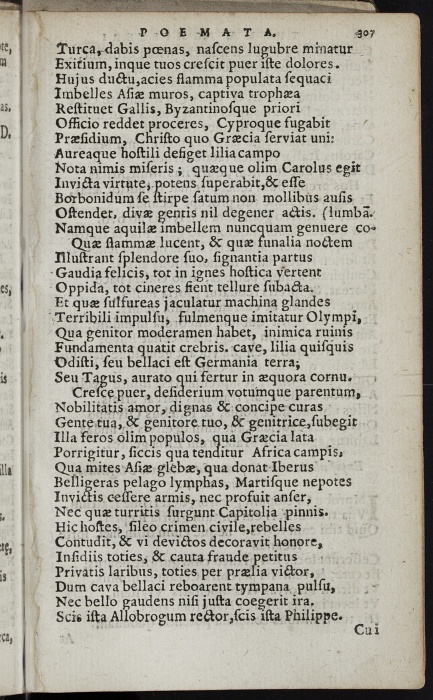 POEMATA. 307
Turca, dabis pœnas, nascens lugubre minatur
Exitium, inque tuos crescit puer iste dolores.
Hujus ductu, acies flamma populata sequaci
Imbelles Asiæ muros, captiva trophæa
Restituet Gallis, Byzantinosque priori
Officio reddet proceres, Cyproque fugabit
Præsidium, Christo quo Græcia serviat uni:
Aureaque hostili desiget lilia campo
Nota nimis miseris; quæque olim Carolus egit
Invicta virtute, potens superabit, & esse
Borbonidum se stirpe satum non mollibus ausis
Ostendet, divæ gentis nil degener actis. (lumbã.
Namque aquilæ imbellem nuncquam genuere co-
Quæ flammæ lucent, & quæ funalia noctem
Illustrant splendore suo, signantia partus
Gaudia felicis, tot in ignes hostica vertent
Oppida, tot cineres fient tellure subacta.
Et quæ sulfureas jaculatur machina glandes
Terribili impulsu, fulmenque imitatur Olympi,
Qua genitor moderamen habet, inimica ruinis
Fundamenta quatit crebris. cave, lilia quisquis
Odisti, seu bellaci est Germania terra;
Seu Tagus, aurato qui fertur in æquora cornu.
Cresce puer, desiderium votumque parentum,
Nobilitatis amor, dignas & concipe curas
Gente tua, & genitore tuo, & genitrice, subegit
Illa feros olim populos, qua Græcia lata
Porrigitur, siccis qua tenditur Africa campis,
Qua mites Asiæ glebæ, qua donat Iberus
Belligeras pelago lymphas, Martisque nepotes
Invictis cessere armis, nec profuit anser,
Nec quæ turritis surgunt Capitolia pinnis.
Hic hostes, sileo crimen civile, rebelles
Contudit, & vi devictos decoravit honore,
Insidiis toties, & cauta fraude petitus
Privatis laribus, toties per prælia victor,
Dum cava bellaci reboarent tympana pulsu,
Nec bello gaudens nisi justa coegerit ira.
Scis ista Allobrogum rector, scis ista Philippe.
Cui